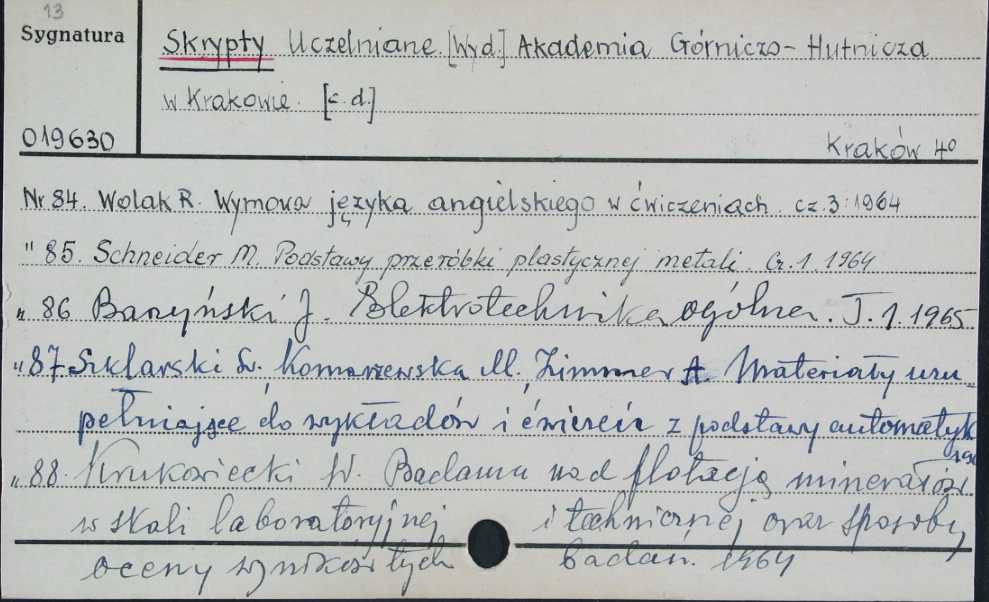 13
Sygnatura
Skrypty Uczelniane. [Wyd.] Akademia Górniczo-Hutnicza
w Krakowie. [c.d.]
019630
Kraków 4°
Nr 84. Wolak R. Wymowa języka angielskiego w ćwiczeniach. cz.3. 1964
" 85. Schneider M. Podstawy przeróbki plastycznej metali. Cz.1. 1964
" 86 Barzyński J. Elektrotechnika ogólna. T.1. 1965
" 87 Szklarski L., Komorzewska M., Zimmer A. Materiały uzu-
pełniające do wykładów i ćwiczeń z podstawy automatyk
" 88. Krukowiecki W. Badania nad flotacją minerałów
w skali laboratoryjnej i technicznej oraz sposoby
oceny wyników tych badań. 1964